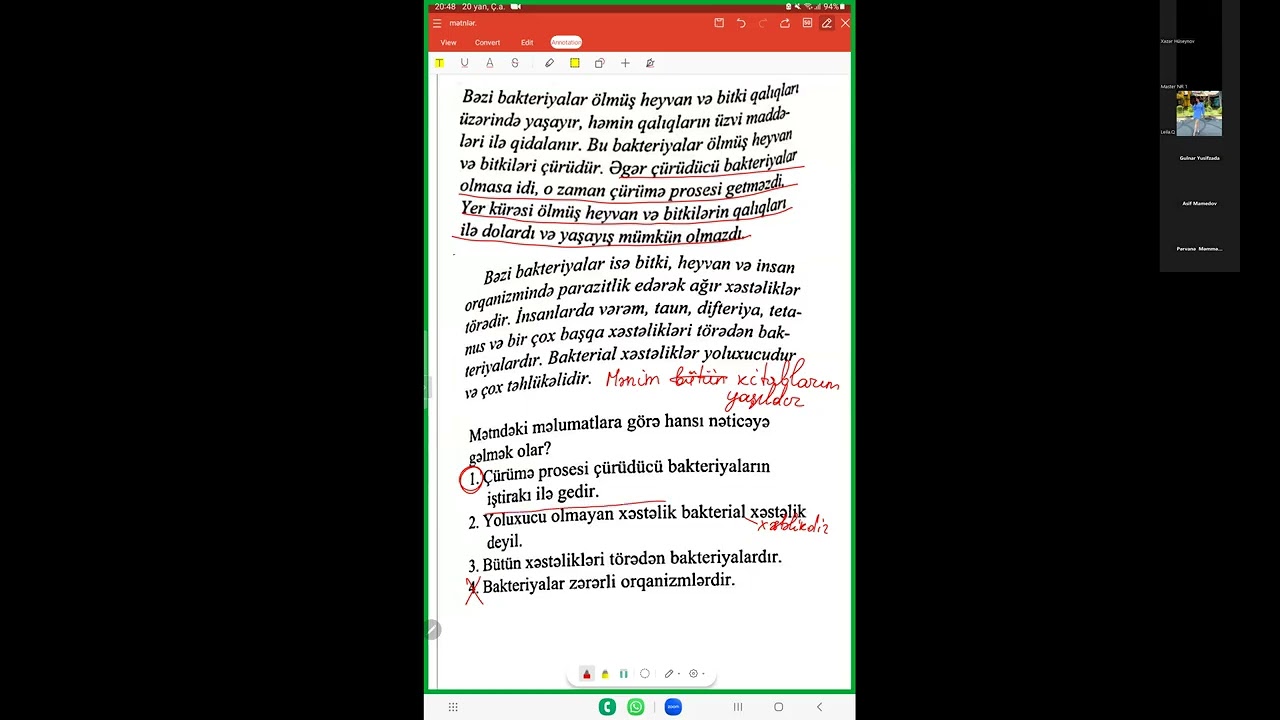 20:48 20 yan, Ç.a.
94%
mətnlər.
View Convert Edit Annotation
Bəzi bakteriyalar ölmüş heyvan və bitki qalıqları
üzərində yaşayır, həmin qalıqların üzvi maddə-
ləri ilə qidalanır. Bu bakteriyalar ölmüş heyvan
və bitkiləri çürüdür. Əgər çürüdücü bakteriyalar
olmasa idi, o zaman çürümə prosesi getməzdi.
Yer kürəsi ölmüş heyvan və bitkilərin qalıqları
ilə dolardı və yaşayış mümkün olmazdı.
Bəzi bakteriyalar isə bitki, heyvan və insan
orqanizmində parazitlik edərək ağır xəstəliklər
törədir. İnsanlarda vərəm, taun, difteriya, teta-
nus və bir çox başqa xəstəlikləri törədən bak-
teriyalardır. Bakterial xəstəliklər yoluxucudur
və çox təhlükəlidir. Mənim bütün kitablarım
yaşıldır
Mətndəki məlumatlara görə hansı nəticəyə
gəlmək olar?
1. Çürümə prosesi çürüdücü bakteriyaların
iştirakı ilə gedir.
2. Yoluxucu olmayan xəstəlik bakterial xəstəlik
xəstəlikdir
deyil.
3. Bütün xəstəlikləri törədən bakteriyalardır.
4. Bakteriyalar zərərli orqanizmlərdir.
Xəzər Hüseynov
Master NR 1
Leila.Q
Gulnar Yusifzada
Asif Mamedov
Pərvanə Məmma...
zoom